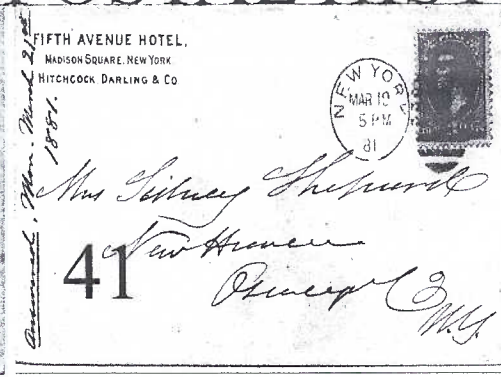 FIFTH AVENUE HOTEL,
MADISON SQUARE, NEW YORK
HITCHCOCK DARLING & CO
NEW YORK
MAR 19
5 PM
81
Answered, Mon. March 21st
1881.
Mrs Sidney Shepard
New Haven
Oswego Co
N.Y.
41